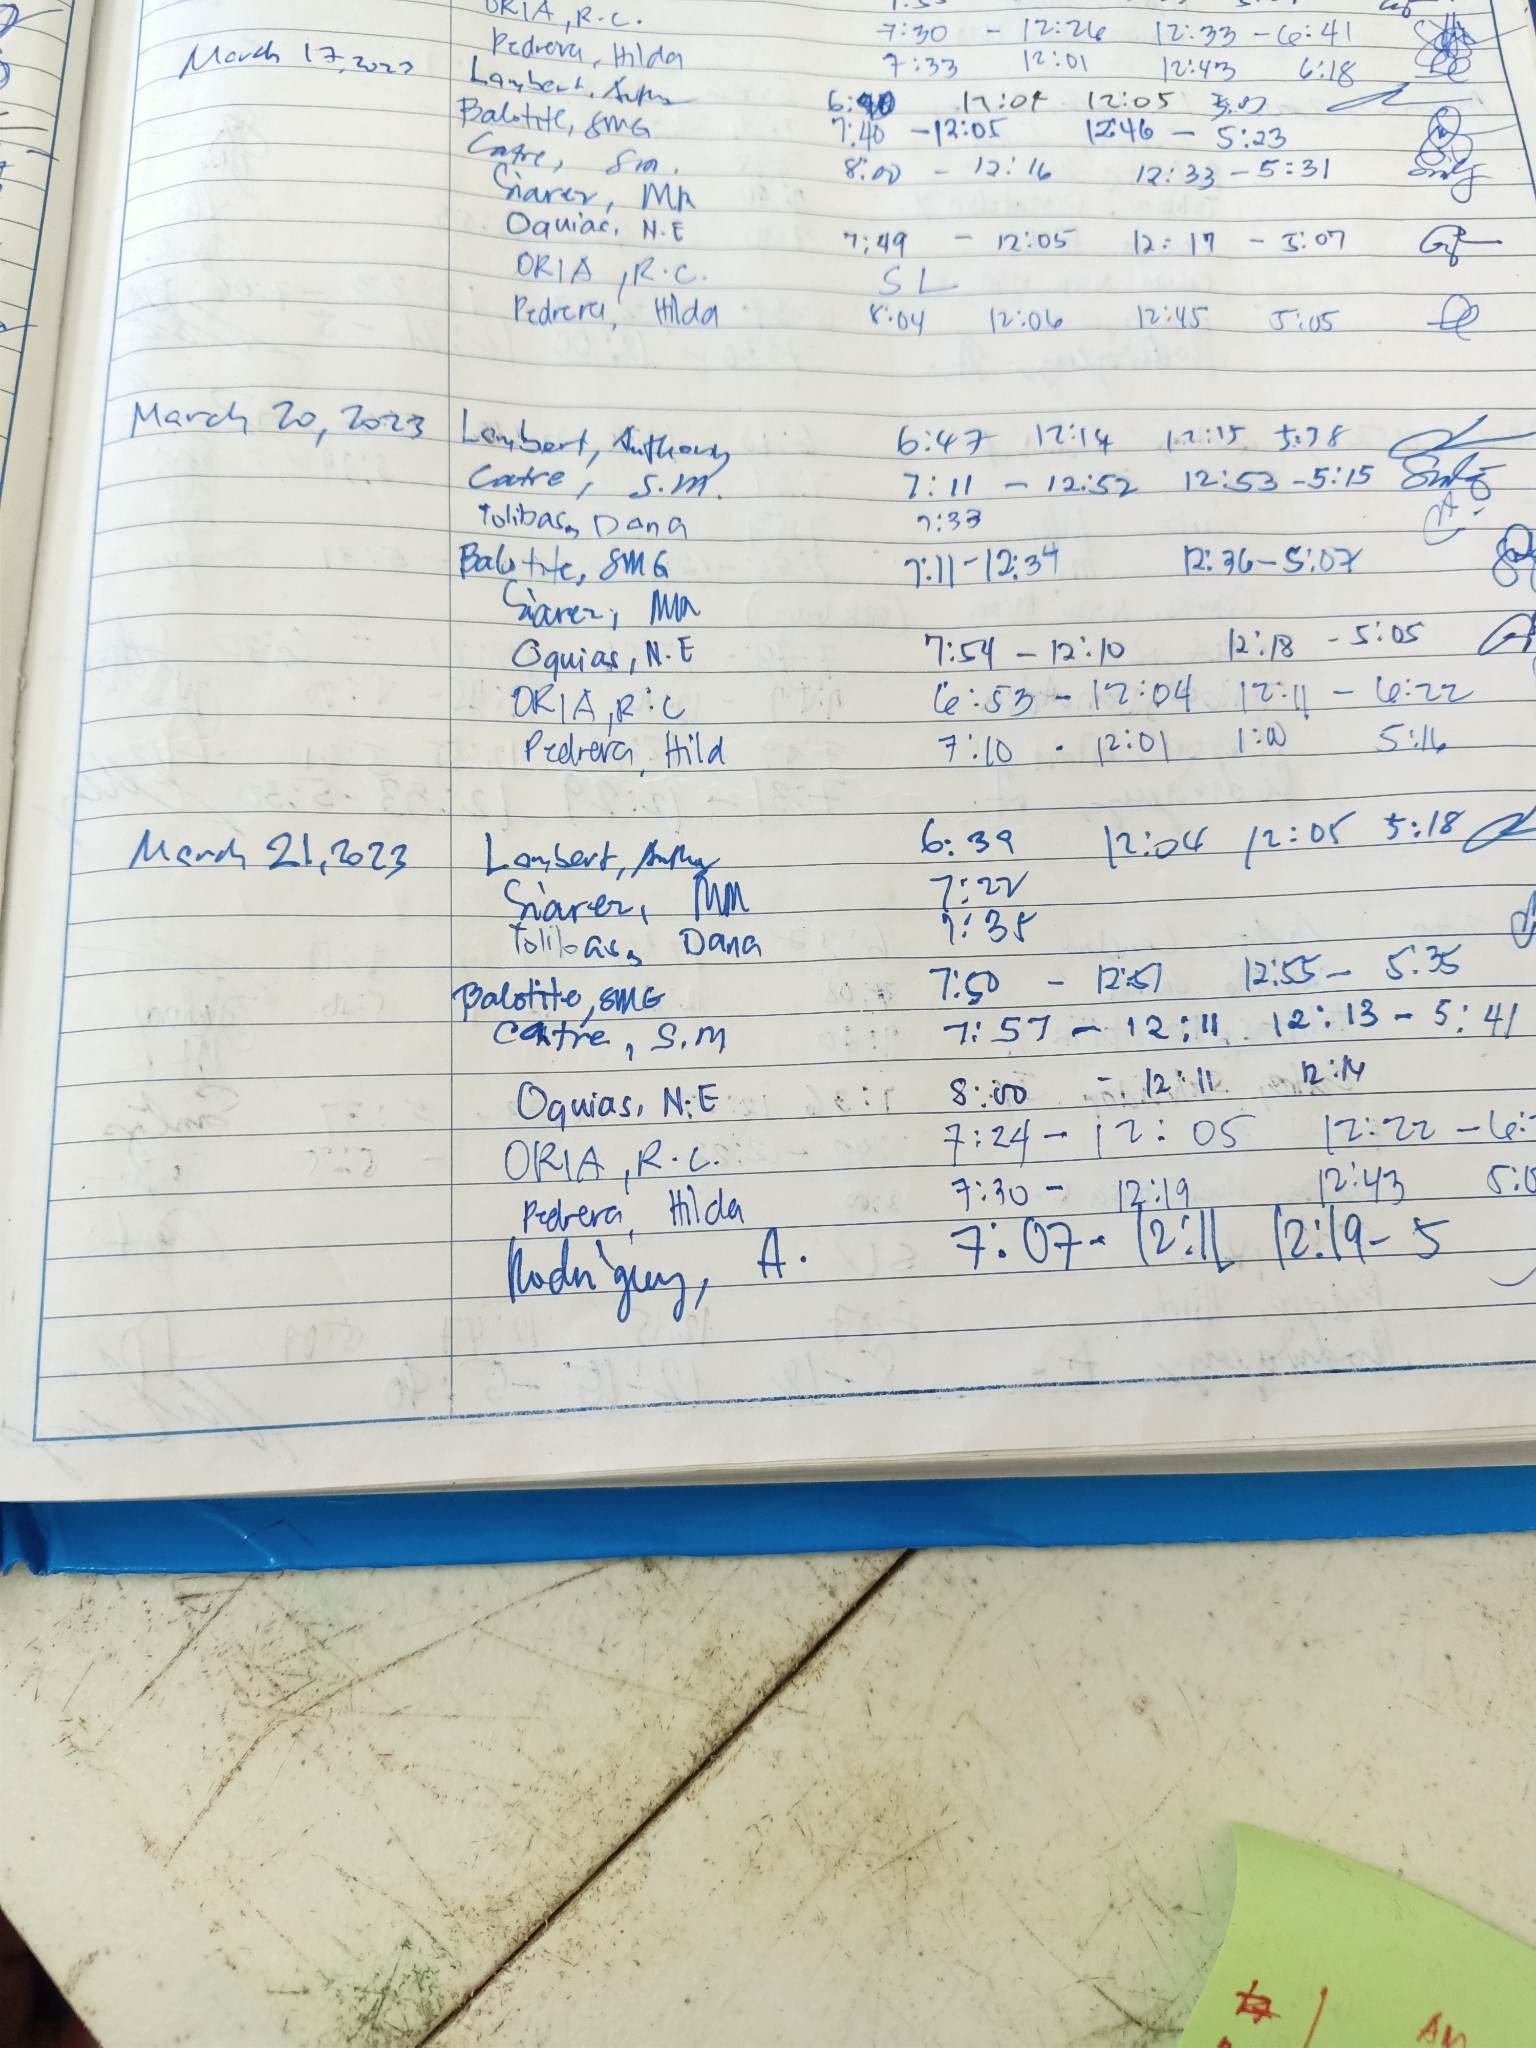 ORIA, R.C.
7:30 - 12:26 12:33 - 6:41
Pedrera, Hilda 7:33 12:01 12:43 6:18
March 17, 2023 Lambert, 6: 12:04 12:05
Balotite, SMG 7:40 - 12:05 12:46 - 5:23
Catre, Sm. 8:00 - 12:16 12:33 - 5:31
Siarez, MM
Oquias, N.E 7:49 - 12:05 12:17 - 5:07
ORIA, R.C. SL
Pedrera, Hilda 8:04 12:06 12:45 5:05
March 20, 2023 Lambert, Anthony 6:47 12:14 12:15
Catre, S.M. 7:11 - 12:52 12:53 - 5:15
Tolibas, Dana 7:33
Balotite, SMG 7:11 - 12:34 12:36 - 5:07
Siarez, MM
Oquias, N.E 7:54 - 12:10 12:18 - 5:05
ORIA, R.C 6:53 - 12:04 12:11 - 6:22
Pedrera, Hild 7:10 - 12:01 1:00 5:16
March 21, 2023 Lambert, 6:39 12:04 12:05 5:18
Siarez, MM 7:22
Tolibas, Dana 7:35
Balotite, SMG 7:50 - 12:51 12:55 - 5:35
Catre, S.M 7:57 - 12:11 12:13 - 5:41
Oquias, N.E 8:00 - 12:11 12:14
ORIA, R.C. 7:24 - 12:05 12:22 - 6:
Pedrera, Hilda 7:30 - 12:19 12:43 5:0
Rodriguez, A. 7:07 - 12:11 12:19 - 5
AM